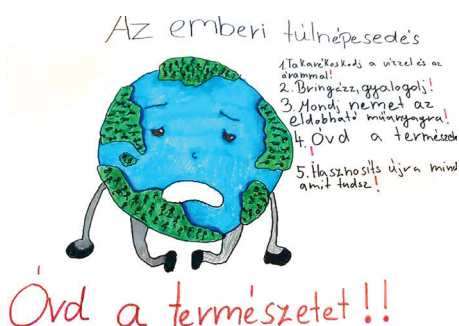 Az emberi túlnépesedés
1. Takarékoskodj a vízzel és az
árammal!
2. Bringázz, gyalogolj!
3. Mondj nemet az
eldobható műanyagra!
4. Óvd a természetet
!
5. Hasznosíts újra mindent
amit tudsz!
Óvd a természetet!!